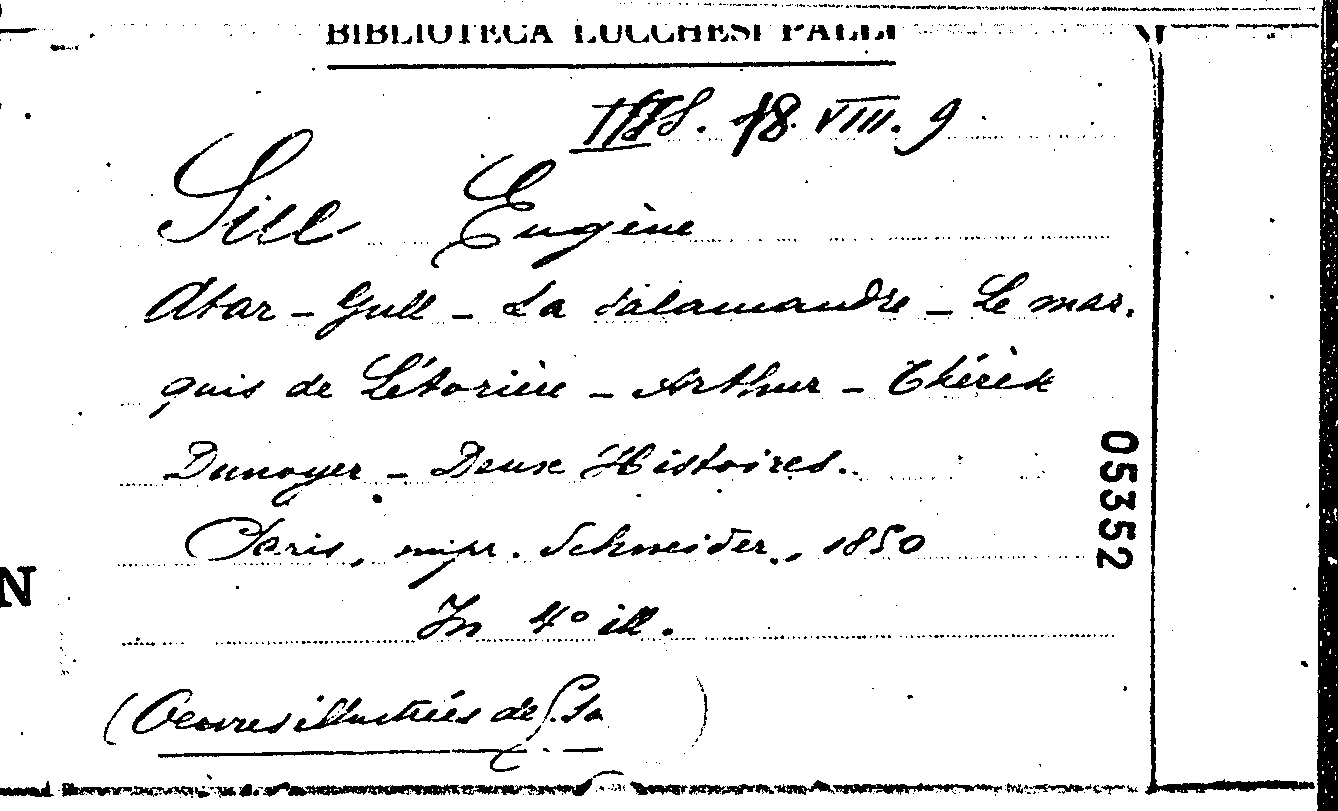 BIBLIOTECA LUCCHESI PALLI
18. VIII. 9
Sue Eugène
Atar - Gull - La Salamandre - Le mar-
quis de Létorière - Arthur - Thérèse
Dunoyer - Deux Histoires.
Paris, impr. Schneider, 1850
In 4° ill.
(Oeuvres illustrées de E. Su)
05352
N